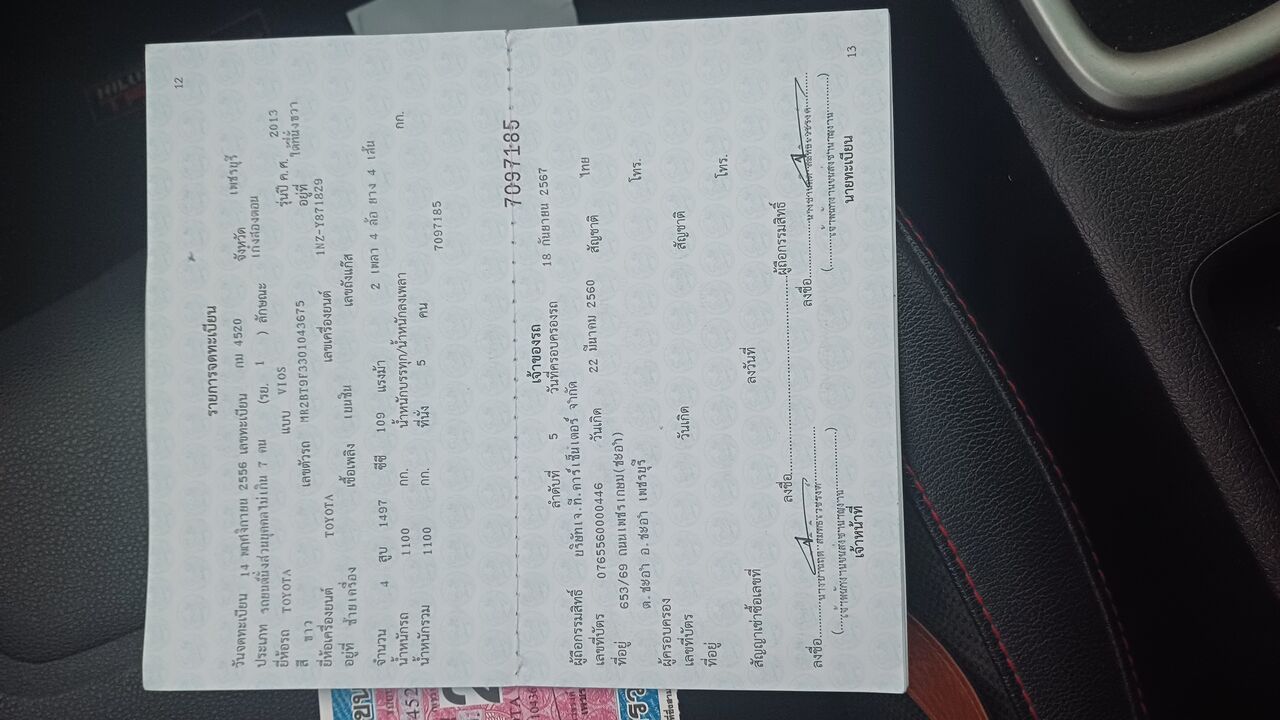 12
รายการจดทะเบียน
วันจดทะเบียน 14 พฤศจิกายน 2556 เลขทะเบียน กม 4520 จังหวัด เพชรบุรี
ประเภท รถยนต์นั่งส่วนบุคคลไม่เกิน 7 คน (รย. 1 ) ลักษณะ เก๋งสองตอน
ยี่ห้อรถ TOYOTA แบบ VIOS รุ่นปี ค.ศ. 2013
สี ขาว เลขตัวรถ MR2BT9F3301043675 อยู่ที่ ใต้ที่นั่งขวา
ยี่ห้อเครื่องยนต์ TOYOTA เลขเครื่องยนต์ 1NZ-Y871829
อยู่ที่ ซ้ายเครื่อง เชื้อเพลิง เบนซิน เลขถังแก๊ส
จำนวน 4 สูบ 1497 ซีซี 109 แรงม้า 2 เพลา 4 ล้อ ยาง 4 เส้น
น้ำหนักรถ 1100 กก. น้ำหนักบรรทุก/น้ำหนักลงเพลา กก.
น้ำหนักรวม 1100 กก. ที่นั่ง 5 คน
7097185
7097185
เจ้าของรถ
ลำดับที่ 5 วันที่ครอบครองรถ 18 กันยายน 2567
ผู้ถือกรรมสิทธิ์ บริษัทเจ.ที.คาร์เซ็นเตอร์ จำกัด
เลขที่บัตร 0765560000446 วันเกิด 22 มีนาคม 2560 สัญชาติ ไทย
ที่อยู่ 653/69 ถนนเพชรเกษม(ชะอำ) โทร.
ต.ชะอำ อ.ชะอำ เพชรบุรี
ผู้ครอบครอง
เลขที่บัตร วันเกิด สัญชาติ
ที่อยู่ โทร.
สัญญาเช่าซื้อเลขที่ ลงวันที่
ลงชื่อ ผู้ถือกรรมสิทธิ์
ลงชื่อ ลงชื่อ
(เจ้าพนักงานขนส่งชำนาญงาน) (เจ้าพนักงานขนส่งชำนาญงาน)
เจ้าหน้าที่ นายทะเบียน
13